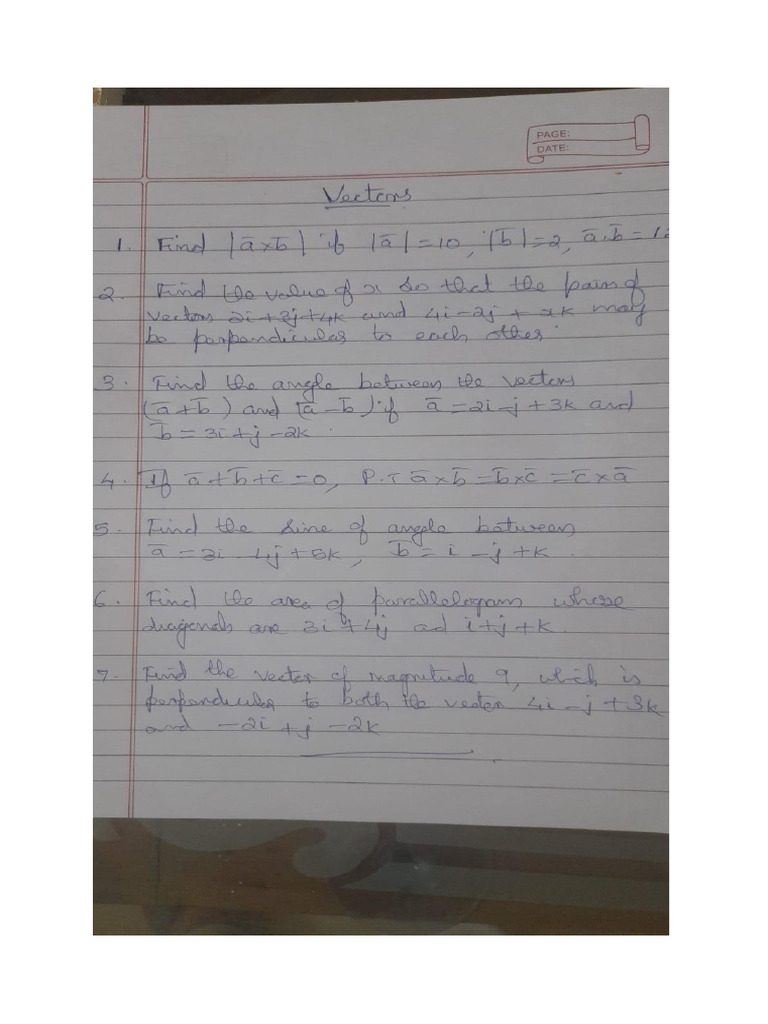 PAGE:
DATE:
Vectors
1. Find |a̅×b̅| if |a̅|=10, |b̅|=2, a̅.b̅=12
2. Find the value of x so that the pairs of
vectors 2i+3j+4k and 4i-2j+xk may
be perpendicular to each other.
3. Find the angle between the vectors
(a̅+b̅) and (a̅-b̅) if a̅=2i-j+3k and
b̅=3i+j-2k.
4. If a̅+b̅+c̅=0, P.T a̅×b̅=b̅×c̅=c̅×a̅
5. Find the sine of angle between
a̅=3i-4j+5k, b̅=i-j+k.
6. Find the area of parallelogram whose
diagonals are 3i+4j ad i+j+k.
7. Find the vector of magnitude 9, which is
perpendicular to both the vector 4i-j+3k
and -2i+j-2k